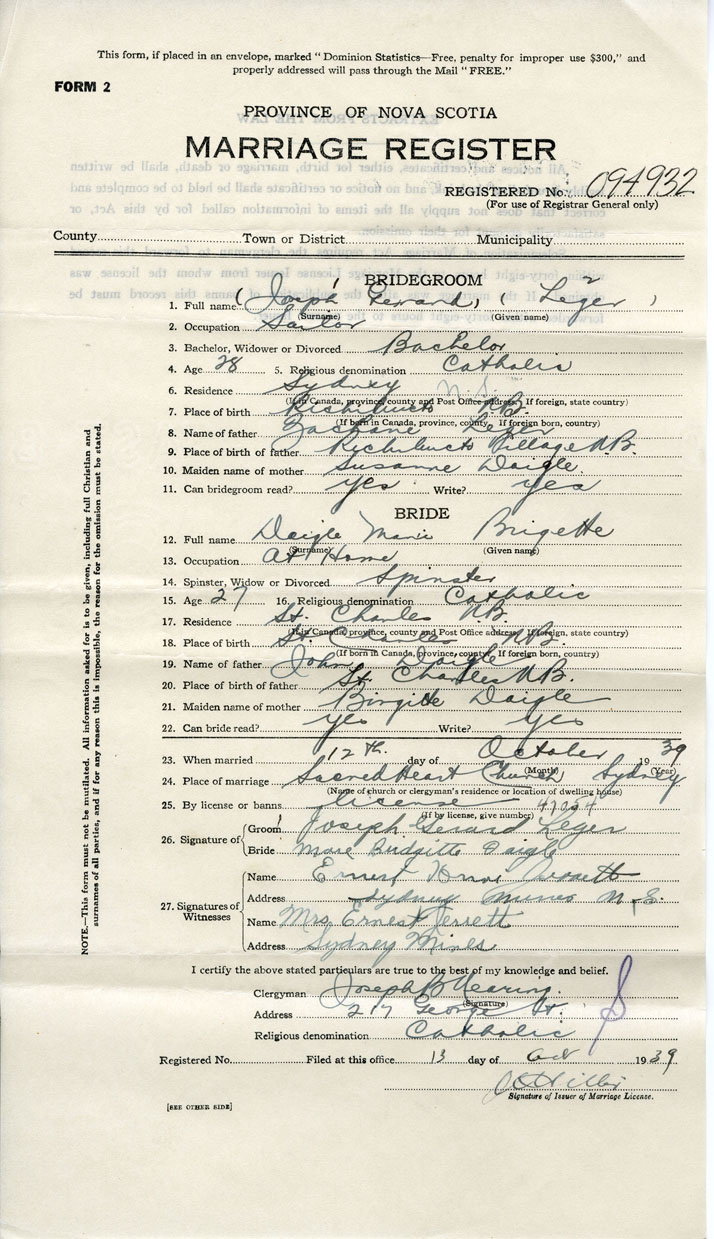 This form, if placed in an envelope, marked "Dominion Statistics—Free, penalty for improper use $300," and
properly addressed will pass through the Mail "FREE."
FORM 2
PROVINCE OF NOVA SCOTIA
MARRIAGE REGISTER
REGISTERED No. 094932
(For use of Registrar General only)
County Town or District Municipality
BRIDEGROOM
1. Full name (Joseph Gerard) (Leger)
(Surname) (Given name)
2. Occupation Sailor
3. Bachelor, Widower or Divorced Bachelor
4. Age 28 5. Religious denomination Catholic
6. Residence Sydney N.S.
(If in Canada, province, county and Post Office address. If foreign, state country)
7. Place of birth Richibucto N.B.
(If born in Canada, province, county. If foreign born, country)
8. Name of father Leger
9. Place of birth of father Richibucto Village N.B.
10. Maiden name of mother Susanne Daigle
11. Can bridegroom read? yes Write? yes
BRIDE
12. Full name Daigle Marie Brigette
(Surname) (Given name)
13. Occupation At Home
14. Spinster, Widow or Divorced Spinster
15. Age 27 16. Religious denomination Catholic
17. Residence St. Charles N.B.
(If in Canada, province, county and Post Office address. If foreign, state country)
18. Place of birth St. Charles N.B.
(If born in Canada, province, county. If foreign born, country)
19. Name of father John Daigle
20. Place of birth of father St. Charles N.B.
21. Maiden name of mother Birgitte Daigle
22. Can bride read? yes Write? yes
23. When married 12th. day of October 1939
(Month) (Year)
24. Place of marriage Sacred Heart Church Sydney
(Name of church or clergyman's residence or location of dwelling house)
25. By license or banns license 47054
(If by license, give number)
26. Signature of Groom Joseph Gerard Leger
Bride Marie Budgitte Daigle
27. Signatures of Witnesses
Name Ernest
Address Sydney Mines N.S.
Name Mrs Ernest Jerrett
Address Sydney Mines
I certify the above stated particulars are true to the best of my knowledge and belief.
Clergyman Joseph B Nearing.
(Signature)
Address 217 George St.
Religious denomination Catholic
Registered No. Filed at this office 13 day of Oct 1939
Signature of Issuer of Marriage License.
[SEE OTHER SIDE]
NOTE.—This form must not be mutilated. All information asked for is to be given, including full Christian and
surnames of all parties, and if for any reason this is impossible, the reason for the omission must be stated.